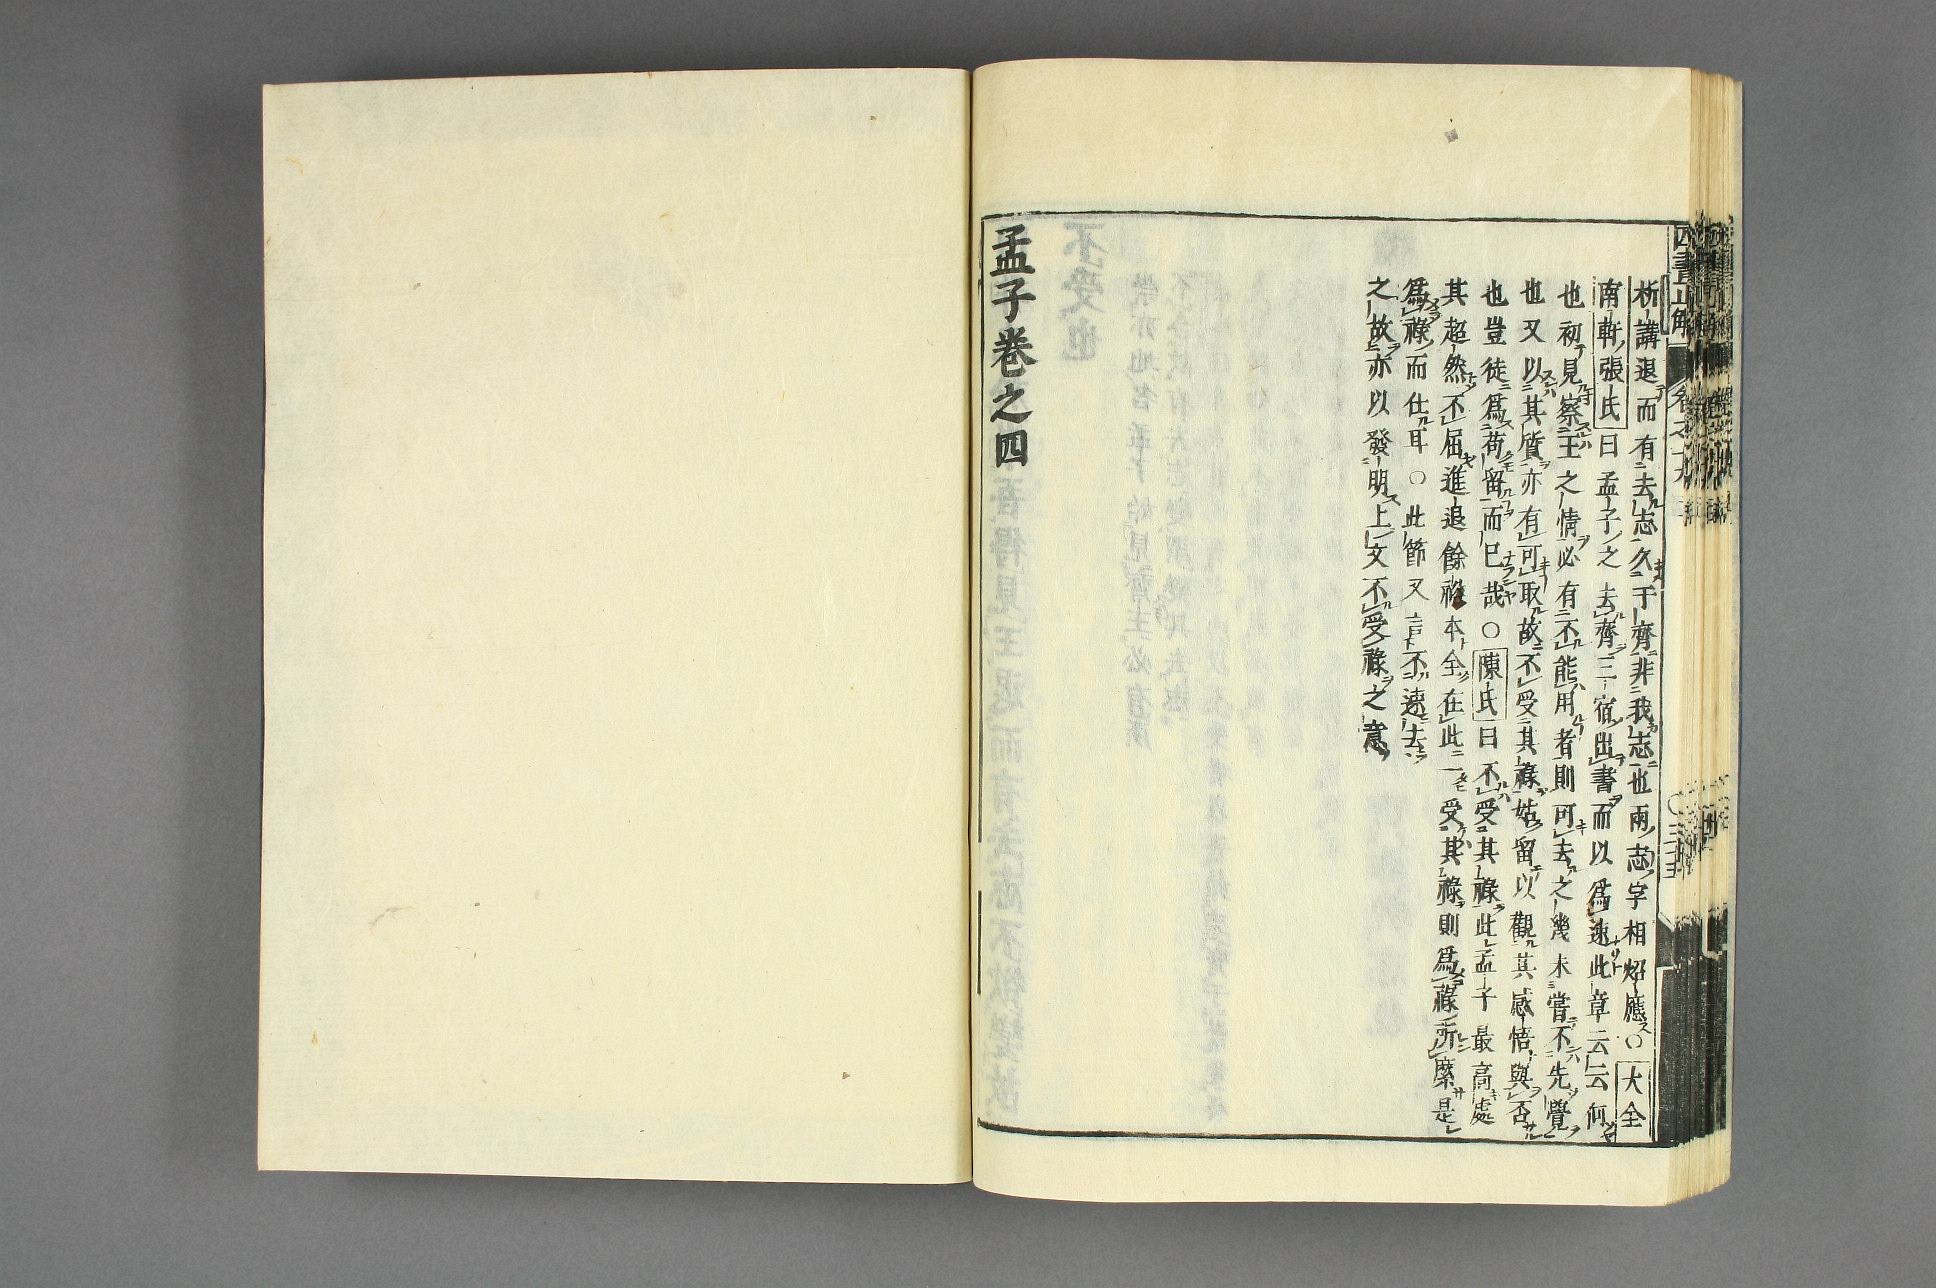 析講退而有去志久于齊非我志也兩志字相炤應○大全
南軒張氏曰孟子之去齊三宿出晝而以爲速此章云云何
也初見察王之情必有不能用者則可去之幾未嘗不先覺
也又以其質亦有可取故不受其祿姑留以觀其感悟與否
也豈徒爲苟留而已哉○陳氏曰不受其祿此孟子最高處
其超然不屈進退餘裕本全在此一受其祿則爲祿所縻是
爲祿而仕耳○此節又言不速去
之故亦以發明上文不受祿之意
孟子卷之四